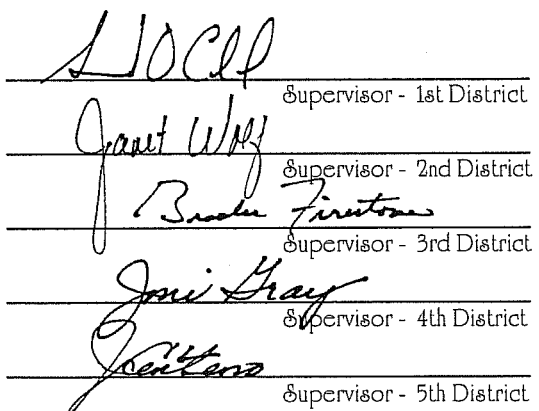 Supervisor - 1st District
Janet Wolf
Supervisor - 2nd District
Brooks Firestone
Supervisor - 3rd District
Joni Gray
Supervisor - 4th District
Centeno
Supervisor - 5th District